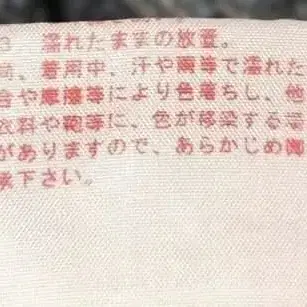 3 濡れたままの放置。
尚、着用中、汗や雨等で濡れた
合や摩擦等により色落ちし、他
衣料や鞄等に、色が移染する
がありますので、あらかじめ
承下さい。